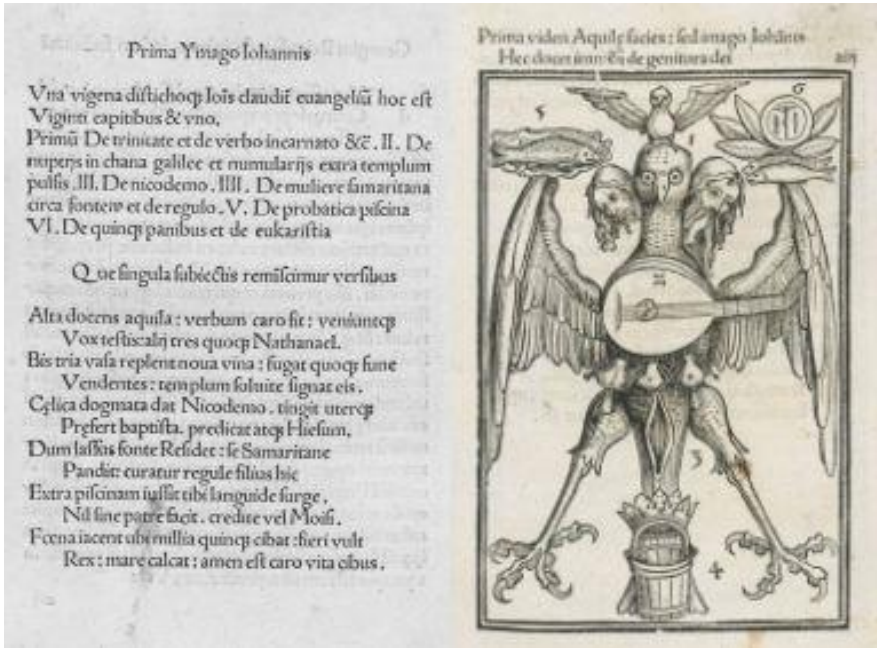 Prima Ymago Iohannis
Vna vigena distichoqꝫ Ioīs claudit̄ euangeliū hoc est
Viginti capitibus & vno.
Primū De trinitate et de verbo incarnato &c̄. II. De
nuptijs in chana galilee et numularijs extra templum
pulsis. III. De nicodemo. IIII. De muliere samaritana
circa fontem et de regulo. V. De probatica piscina
VI. De quinqꝫ panibus et de eukaristia
Que singula subiectis reminiscimur versibus
Alta docens aquila: verbum caro fit: veniuntqꝫ
Vox testis: alij tres quoqꝫ Nathanael.
Bis tria vasa replent noua vina: fugat quoqꝫ fune
Vendentes: templum soluite signat eis.
Cęlica dogmata dat Nicodemo. tingit uterqꝫ
Prefert baptista. predicat atqꝫ Hiesum.
Dum lassus fonte Residet: se Samaritane
Pandit: curatur regule filius hic
Extra piscinam iussit tibi languide surge.
Nil sine patre facit. credite vel Moisi.
Foena iacent ubi millia quinqꝫ cibat: fieri vult
Rex: mare calcat: amen est caro vita cibus.
Prima viden Aquilę facies: sed imago Iohānis
Hec docet de genitura dei
5
6
1
2
3
4